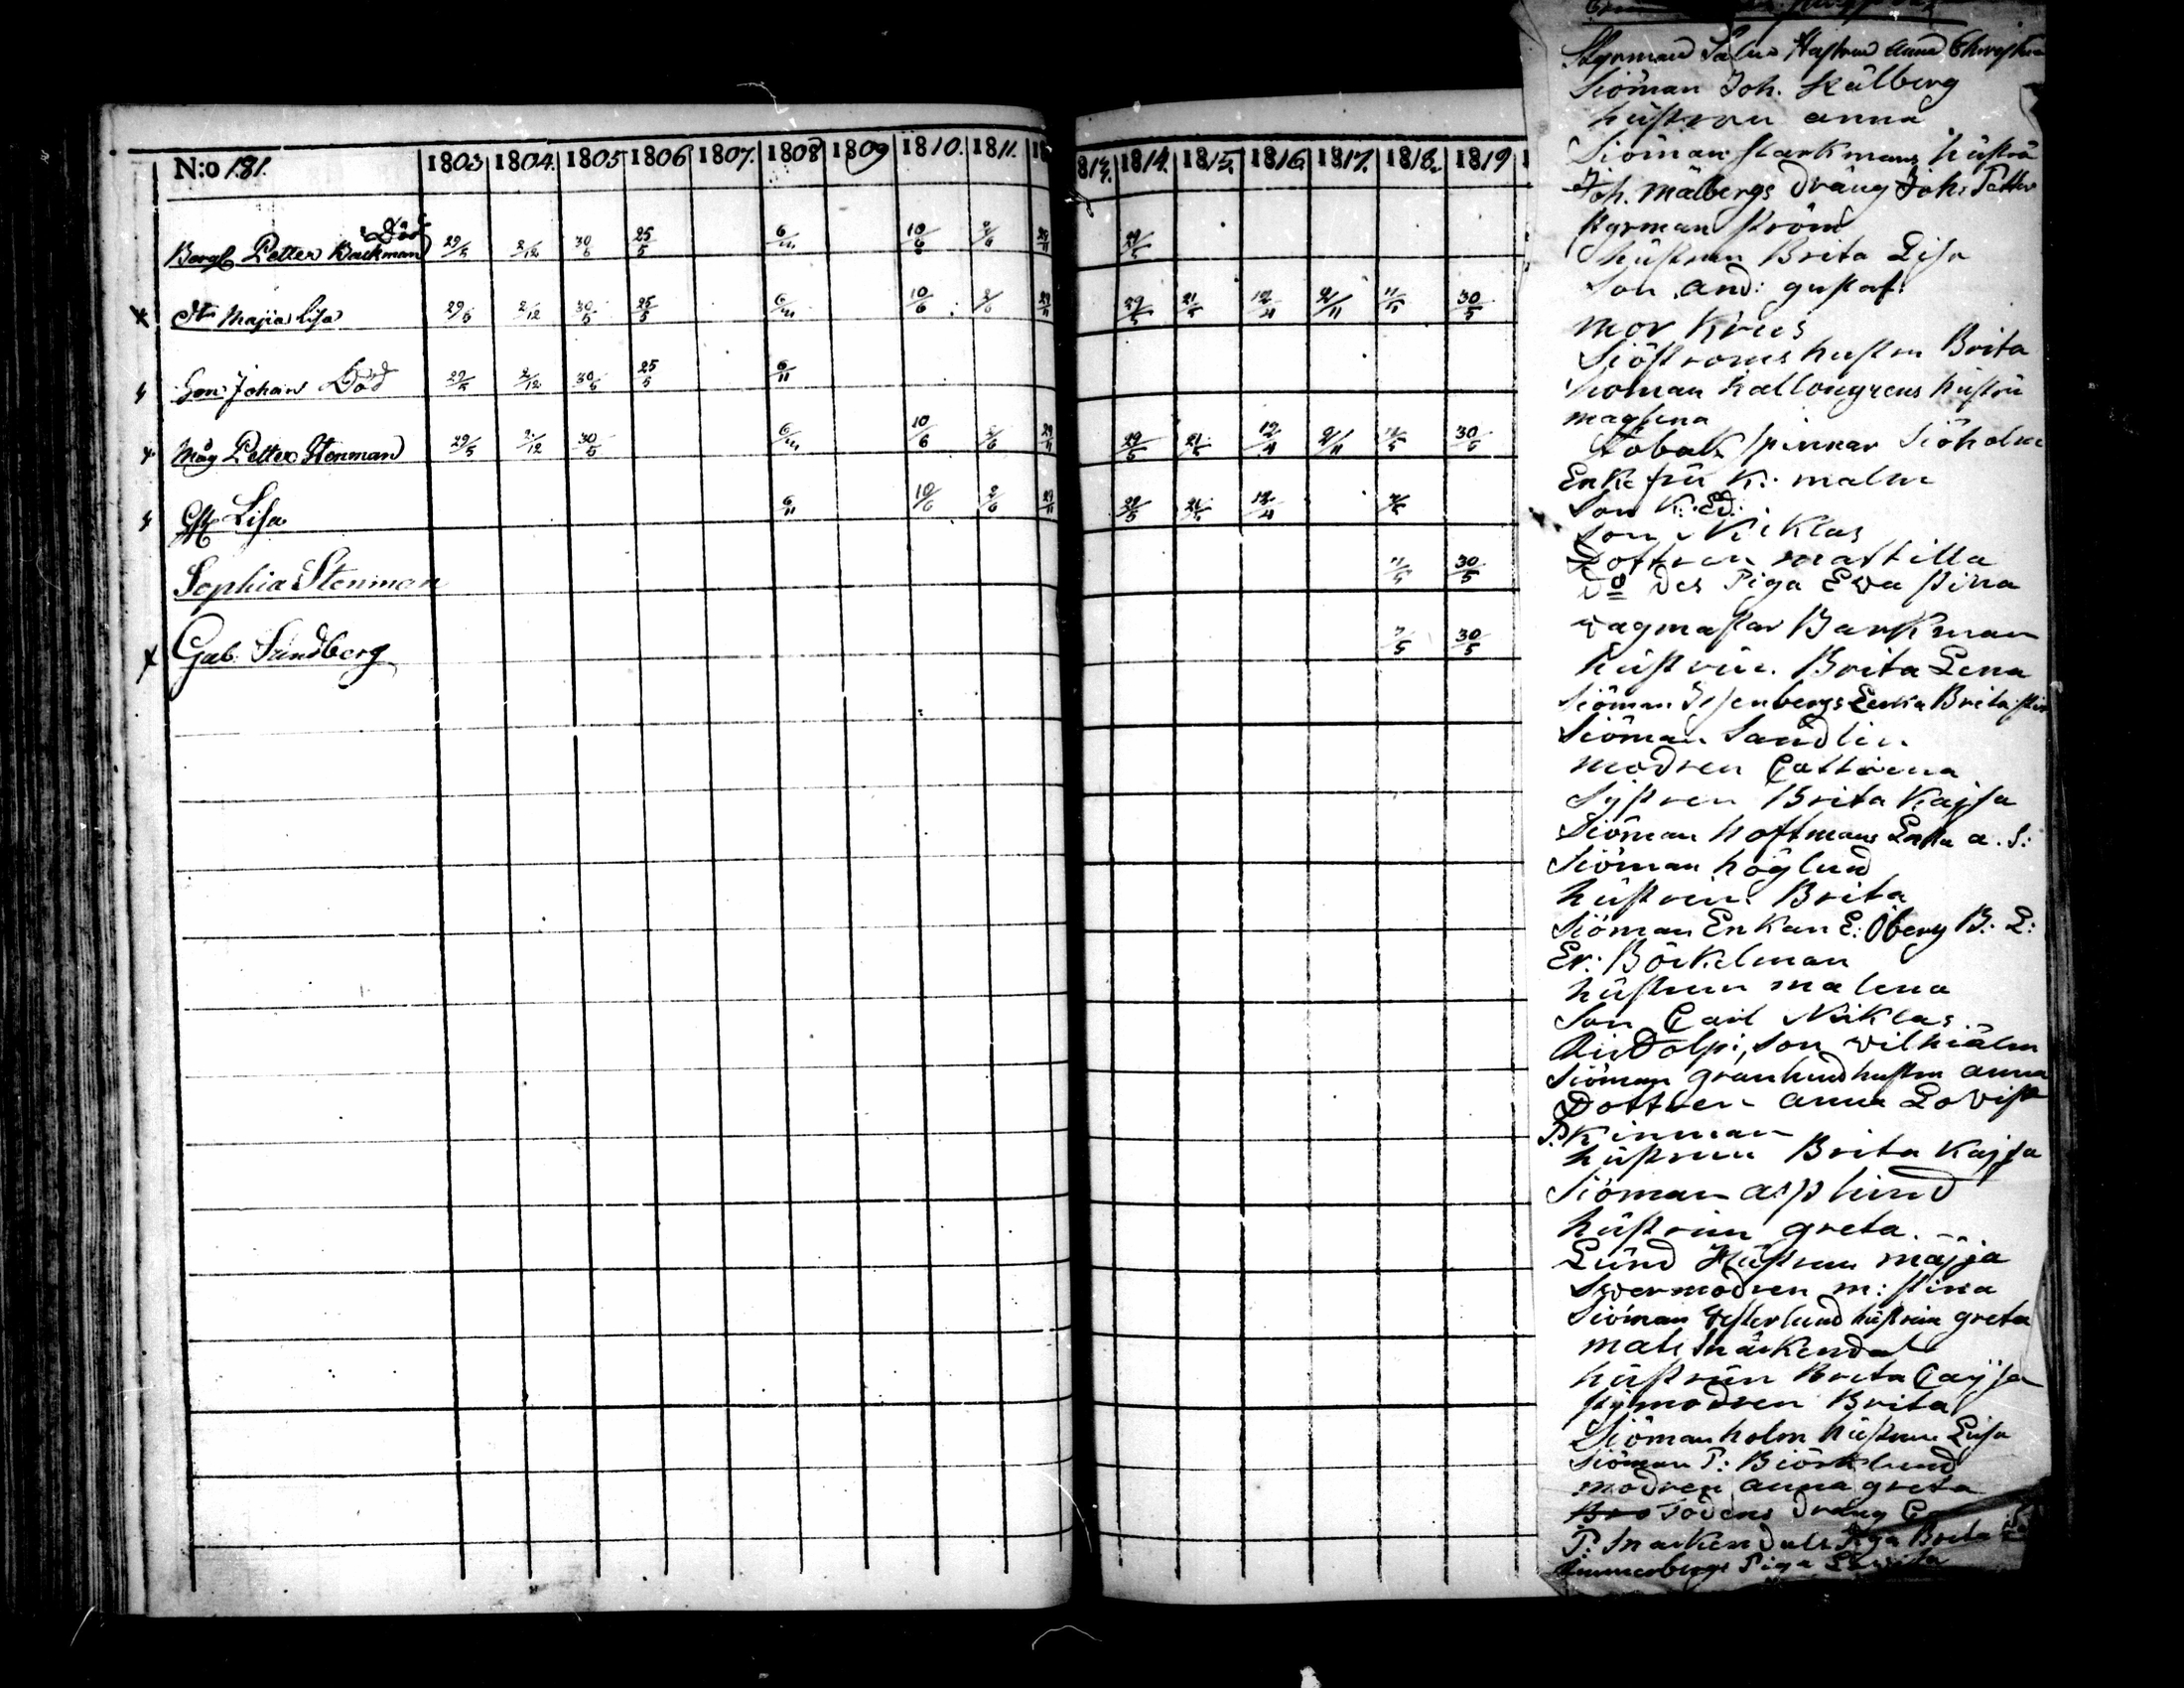 N:o 181. 1803 1804. 1805 1806 1807. 1808 1809 1810. 1811. 18
813. 1814. 1815. 1816. 1817. 1818. 1819
Död
Borg Petter Backman 29/5 2/12 30/6 25/5 6/11 10/6 2/6 29/11 29/5
Maja Lisa 29/5 2/12 30/5 25/5 6/11 10/6 2/6 29/11 29/5 21/5 12/4 2/11 11/5 30/5
Son Johan Död 29/5 2/12 30/5 25/5 6/11
Måg Petter Stenman 29/5 2/12 30/5 6/11 10/6 2/6 29/11 29/5 21/5 12/4 2/11 11/5 30/5
Lisa 6/11 10/6 2/6 29/11 29/5 21/5 12/4 7/5
Sophia Stenman 11/5 30/5
Gab. Sundberg 7/5 30/5
Styrman Hustru Anna
Siöman Joh. Kålberg
hustrun anna
Siöman starkmans hustru
Joh. mälbergs dräng Joh. Petter
styrman ström
hustrun Brita Lisa
Son And: gustaf
mor
Siöströms hustru Brita
Sioman Kallongrens hustru
maglena
Tobak spinnar Siöholm
Enkefru K: malm
Son K: Ed:
Son Niklas
Dottren mattilla
Do Des Piga Eva stina
vagmästar Barkman
hustrun Brita Lena
Siöman Enka Brita
Siöman Sandlin
modren Cattrina
Systren Brita Kajsa
Siöman hoffmans Enka a. S:
Siöman höglund
hustrun Brita
Siöman Enkan E: Öberg B: L:
Er: Böckelman
hustrun malena
Son Carl Niklas
Son vilhiälm
Siöman granlund hustru anna
Dottren anna Lovisa
P. Kinman
hustrun Brita Kajsa
Siöman asplund
hustrun greta
Lund Hustrun majja
Svermodren m: stina
Siöman Vesterlund hustrun greta
mats
hustrun Brita Cajsa
stymodren Brita
Siöman holm hustrun Lisa
Siöman P: Biörklund
modren anna greta
dräng
P: Piga Brita
Piga Lovisa